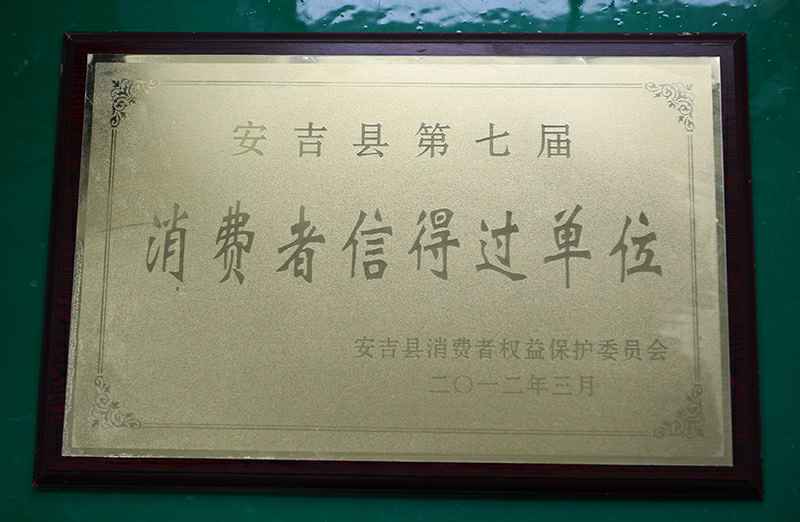 安吉县第七届
消费者信得过单位
安吉县消费者权益保护委员会
二〇一二年三月